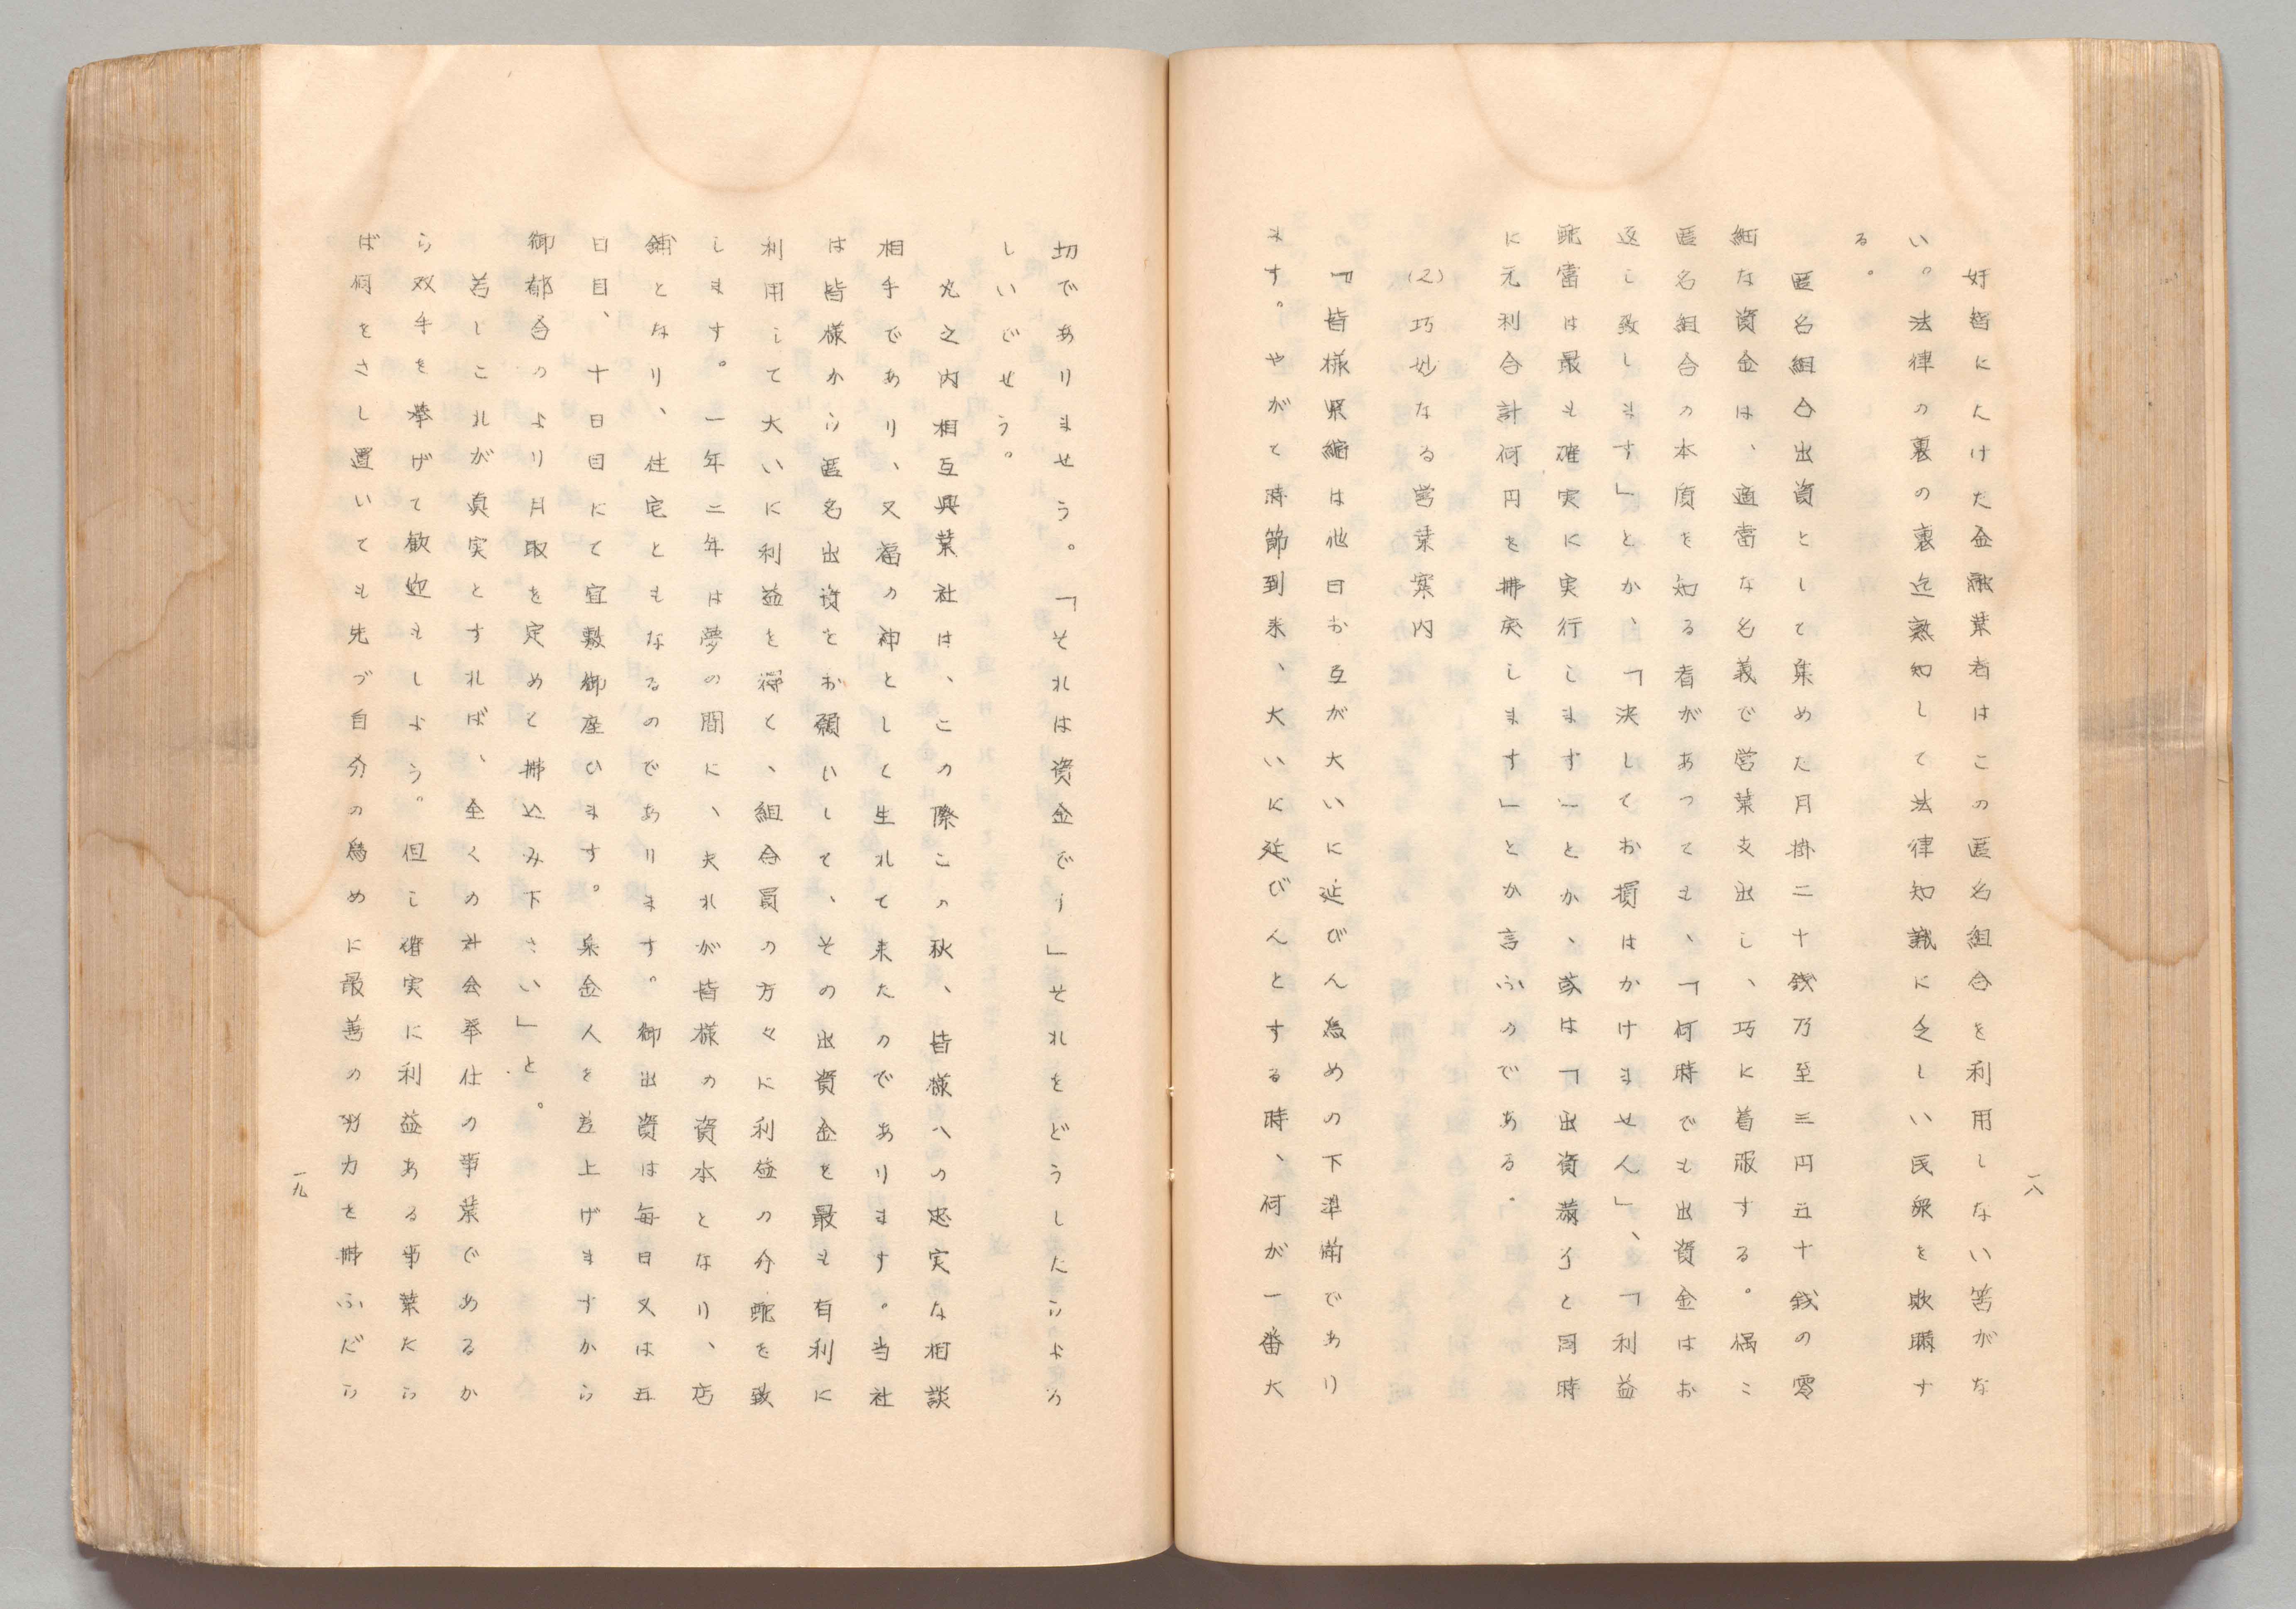 奸智にたけた金融業者はこの匿名組合を利用しない筈がな
い。法律の裏の裏迄熟知して法律知識に乏しい民衆を欺瞞す
る。
匿名組合出資として集めた月掛二十銭乃至三円五十銭の零
細な資金は、適当な名義で営業支出し、巧に着服する。偶ニ
匿名組合の本質を知る者があっても、「何時でも出資金はお
返し致します」とか、「決してお損はかけません」、「利益
配當は最も確実に実行します」とか、或は「出資満了と同時
に元利合計何円を拂戻します」とか言ふのである。
(2)巧妙なる営業案内
『皆様緊縮は他日お互が大いに延びん為めの下準備であり
ます。やがて時節到来、大いに延びんとする時、何が一番大
一八
切でありませう。「それは資金です」それをどうしたらよろ
しいでせう。
丸之内相互興業社は、この際この秋、皆様への忠実な相談
相手であり、又福の神として生れて来たのであります。当社
は皆様から匿名出資をお願いして、その出資金を最も有利に
利用して大いに利益を得て、組合員の方々に利益の分配を致
します。一年二年は夢の間に、夫れが皆様の資本となり、店
鋪となり、住宅ともなるのであります。御出資は毎日又は五
日目、十日目にて宜敷御座ひます。集金人を差上げますから
御都合のより月取を定めて拂込み下さい」と。
若しこれが真実とすれば、全くの社会奉仕の事業であるか
ら双手を挙げて歓迎もしよう。但し確実に利益ある事業たら
ば何をさし置いても先づ自分の為めに最善の努力を拂ふだら
一九